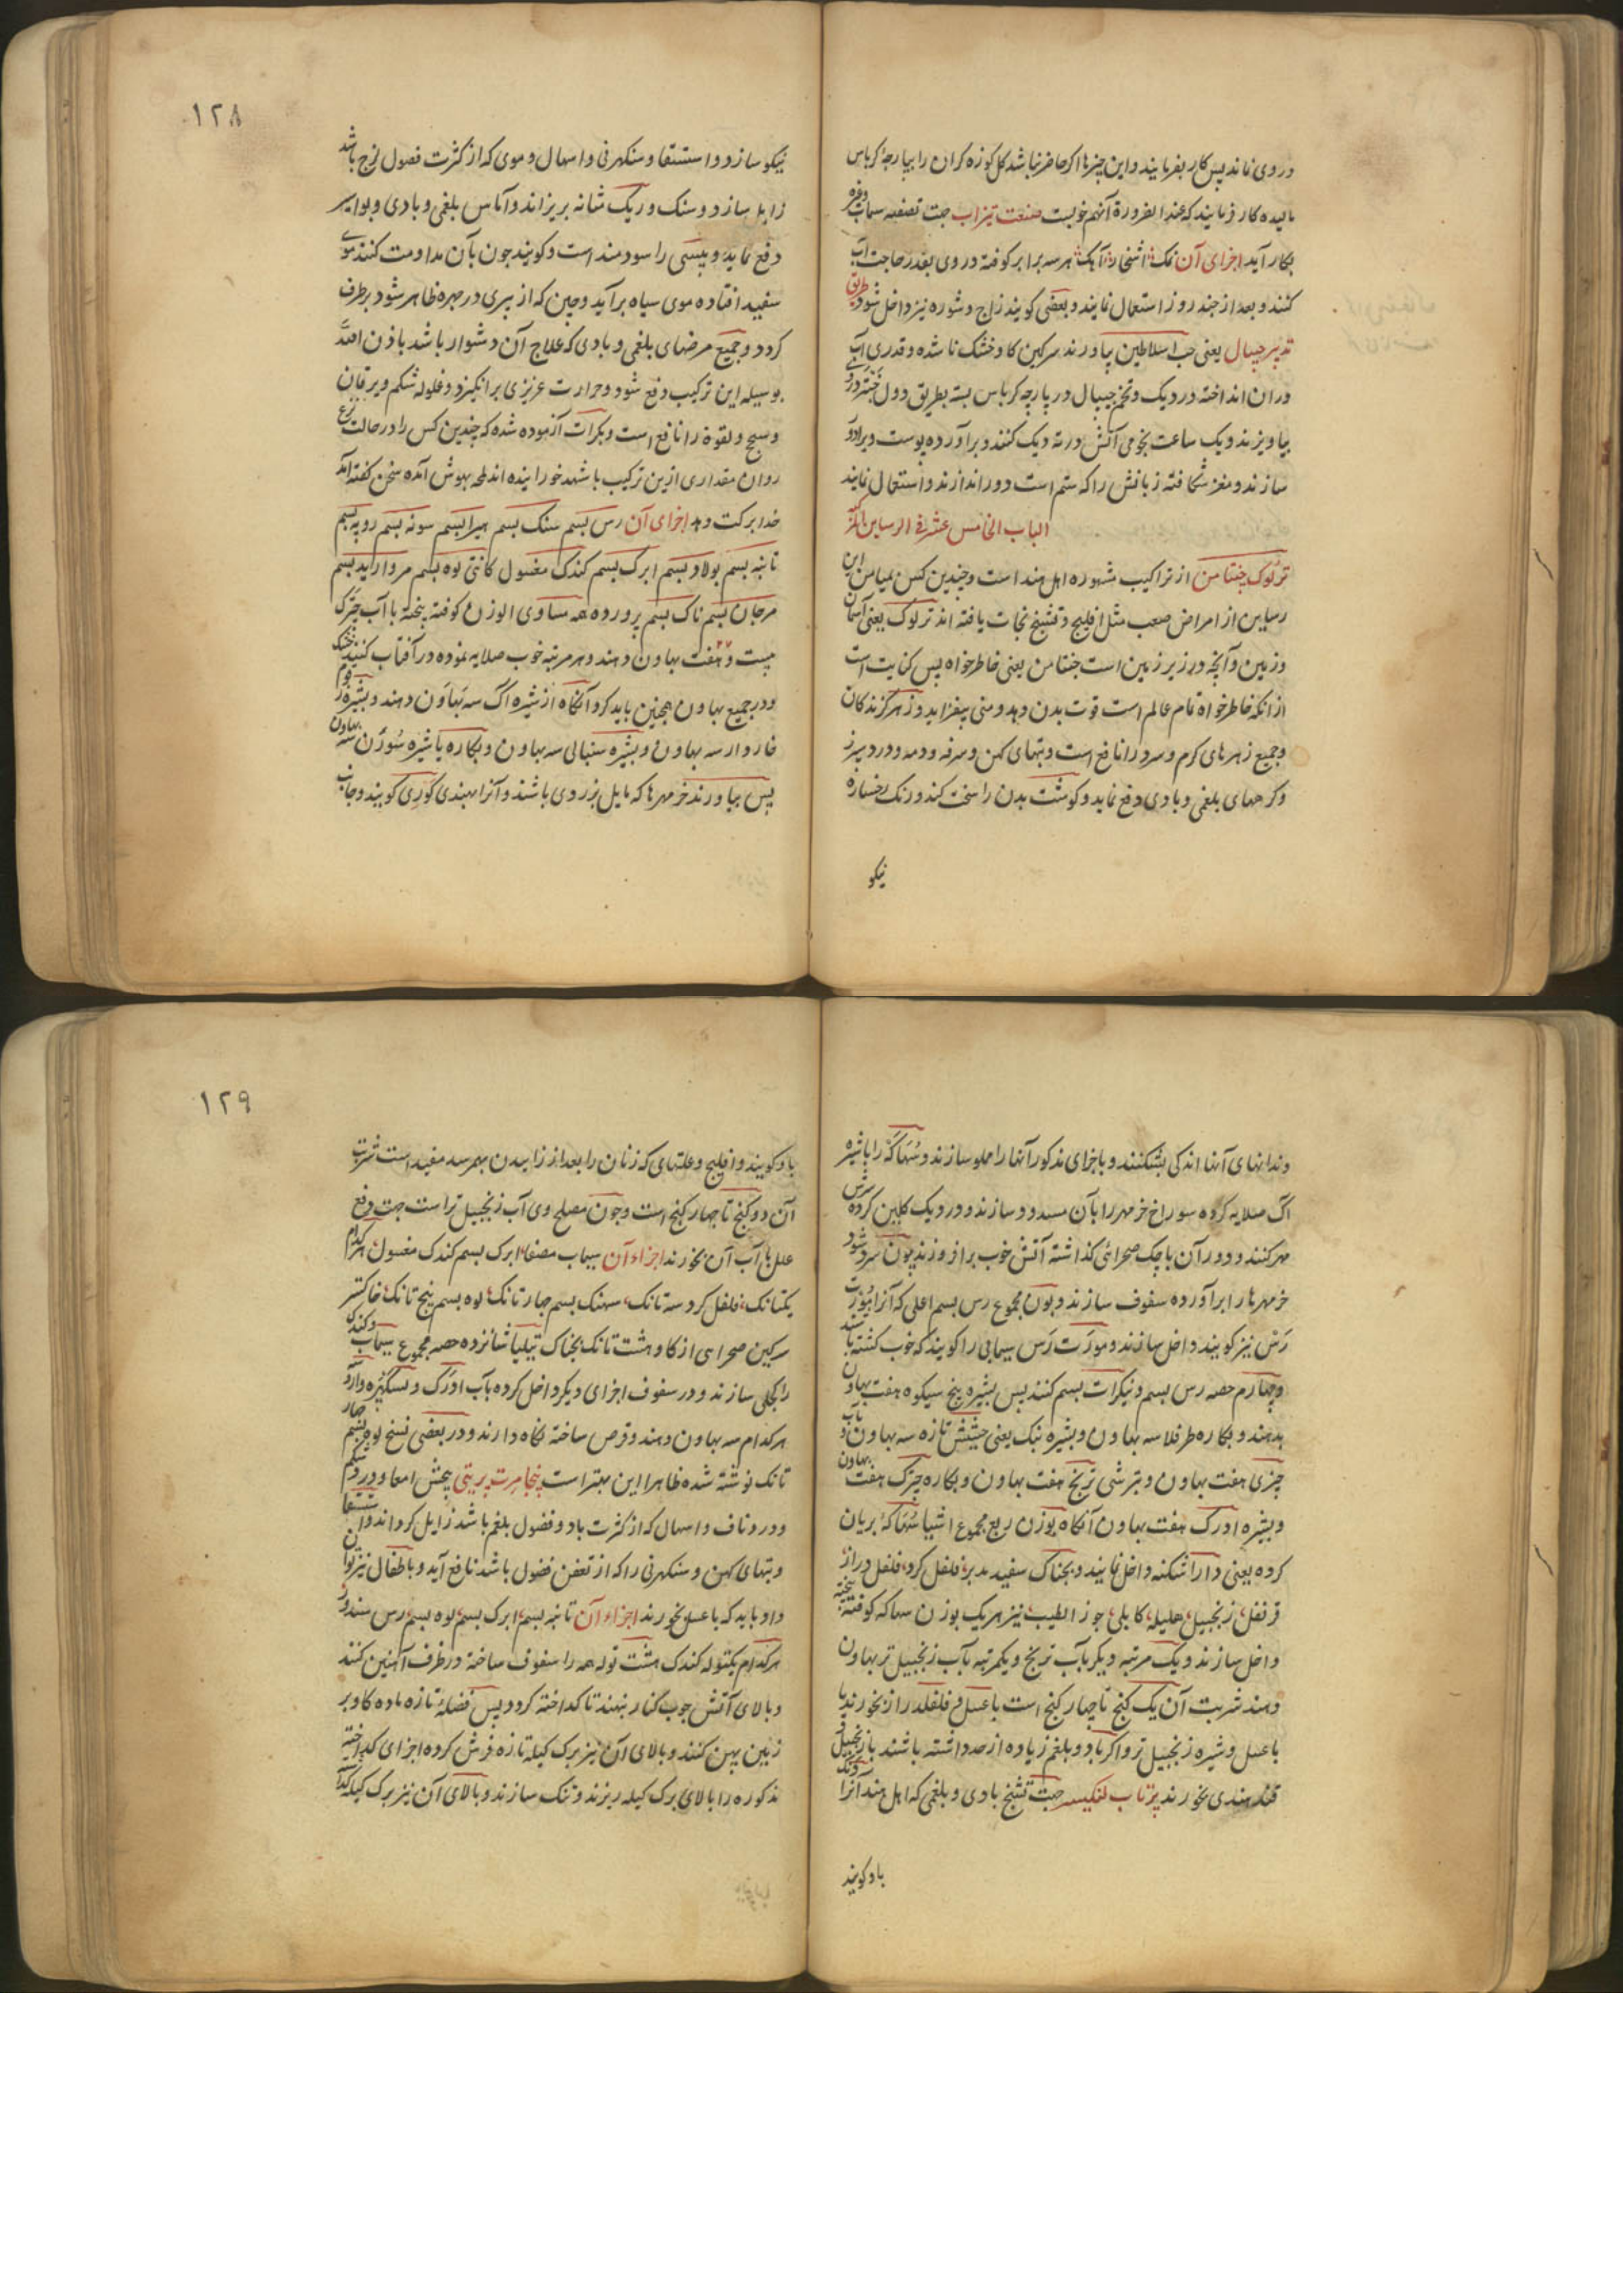 در وی نماند پس کار بفرمایند و این چیزها اگر حاضر نباشد کل کوزه کران را بپارچهٔ کرباس
مالیده کار فرمایند که عند الضرورة آنهم خوبست صنعت تیزاب جهت تصفیه سیماب وغیره
بکار آید اجزای آن نمک اشخار آهک هر سه برابر کوفته در وی بقدر حاجت آب
کنند و بعد از چند روز استعمال نمایند و بعضی کویند زاج و شوره نیز داخل شود طریق
تدبیر جیپال یعنی حب السلاطین بیاورند سرکین کاو خشک ناشده و قدری آب
دران انداخته در دیک و تخم جیپال در پارچه کرباس بسته بطریق دول
بیاویزند و یک ساعت نجومی آتش در ته دیک کنند و برآورده پوست
سازند و مغز شکافته زبانش را که سم است دور اندازند و استعمال نمایند
الباب الخامس عشر فی الرساین
ترلوک چنتامن از تراکیب مشهوره اهل هند است و چندین کس بمیامن این
رساین از امراض صعب مثل افلیج و تشنج نجات یافته اند ترلوک یعنی آسمان
و زمین و آنچه در زیر زمین است چنتامن یعنی خاطرخواه پس کنایت است
از آنکه خاطرخواه تمام عالم است قوت بدن دهد و منی بیفزاید و زهر کزندکان
و جمیع زهرهای کرم و سرد را نافع است و تبهای کهن و سرفه و دمه و درد سپرز
و کرمهای بلغمی و بادی دفع نماید و کوشت بدن را سخت کند و رنک رخساره
نیکو
١٢٨
نیکو سازد و استسقا و سنکهرنی و اسهال دموی که از کثرت فضول لزج باشد
زایل سازد و سنک و ریک شانه بریزاند و آماس بلغمی و بادی و بواسیر
دفع نماید و پیسی را سودمند است و کویند چون بآن مداومت کنند موی
سفید افتاده موی سیاه برآید و چین که از پیری در چهره ظاهر شود برطرف
کردد و جمیع مرضهای بلغمی و بادی که علاج آن دشوار باشد باذن الله
بوسیله این ترکیب دفع شود و حرارت عزیزی برانکیزد و غلوله شکم و یرقان
و سبح و لقوه را نافع است و بکرات آزموده شده که چندین کس را در حالت نزع
روان مقداری ازین ترکیب با شهد خورانیده اند لمحه بهوش آمده سخن کفته اند
خدا برکت دهد اجزای آن رس بسم سنک بسم هیرا بسم سونه بسم روپه بسم
تانبه بسم پولاد بسم ابرک بسم کندک مغسول کانتی لوه بسم مروارید بسم
مرجان بسم ناک بسم پرورده همه مساوی الوزن کوفته بیخته با آب چترک
بیست و هفت بهاون دهند و هر مرتبه خوب صلایه نموده در آفتاب کنند خشک
و در جمیع بهاون همچنین باید کرد آنکاه از شیره آک سه بهاون دهند و بشیره
خاردار سه بهاون و بشیره سنبالی سه بهاون و بکاره یا شیره سورن سه بهاون
پس بیاورند خرمهرها که مایل بزردی باشند و آنرا بهندی کوری کویند و جانب
دندانهای آنها اندکی بشکنند و باجزای مذکور آنها را مملو سازند و سهاکه را باشیره
آک صلایه کرده سوراخ خرمهر را بان مسدود سازند و در دیک کلین کرده سرش
مهر کنند و دور آن پاچک صحرائی کذاشته آتش خوب برافروزند چون سرد شود
خرمهرها را برآورده سفوف سازند و بوزن مجموع رس بسم اعلی که آنرا مورت
رس نیز کویند داخل سازند و مورت رس سیمابی را کویند که خوب کشته باشد
و چهارم حصه رس بسم و نیکرات بسم کنند پس بشیره بیخ سیکوه هفت بهاون
بدهند و بکاره طرفلا سه بهاون و بشیره بنک یعنی حشیش تازه سه بهاون
چتری هفت بهاون و بترشی ترنج هفت بهاون و بکاره چترک هفت بهاون
و بشیره ادرک هفت بهاون آنکاه بوزن ربع مجموع اشیا سهاکه بریان
کرده یعنی دارا شکنه داخل نمایند و بچناک سفید مدبر، فلفل کرد، فلفل دراز
قرنفل، زنجبیل، هلیله کابلی، جوز الطیب نیز هر یک بوزن سهاکه کوفته بیخته
داخل سازند و یک مرتبه دیکر بآب ترنج و یکمرتبه بآب زنجبیل تر بهاون
دهند شربت آن یک کنج تا چهار کنج است با عسل و فلفل دراز بخورند یا
با عسل و شیره زنجبیل تر و اکر باد و بلغم زیاده از حد داشته باشند بازنجبیل و
قند هندی بخورند پرتاب لنکیسر جهت تشنج بادی و بلغمی که اهل هند آنرا
باد کویند
١٢٩
باد کویند و افلیج و علتهای که زنان را بعد از زاییدن بهم رسد مفید است شربت
آن دو کنج تا چهار کنج است و چون مصلح وی آب زنجبیل تر است جهت دفع
علل با آب آن بخورند اجزاء آن سیماب مصفا، ابرک بسم کندک مغسول هر کدام
یکتانک، فلفل کرد سه تانک، سهنک بسم چهار تانک، لوه بسم پنج تانک، خاکستر
سرکین صحرایی از کاو هشت تانک بچناک تیلیا شانزده حصه مجموع سیماب و کندک
را کجلی سازند و در سفوف اجزای دیکر داخل کرده بآب ادرک
هر کدام سه بهاون دهند و قرص ساخته نکاه دارند و در بعضی نسخ لوه بسم چهار
تانک نوشته شده ظاهرا این بهتر است پنچامرت پرپتی پیچش امعا و درد شکم
و درد ناف و اسهال که از کثرت باد و فضول بلغم باشد زایل کرداند و استسقا
و تبهای کهن و سنکهرنی را که از تعفن فضول باشد نافع آید و باطفال نیز توان
داد باید که با عسل بخورند اجزاء آن تانبه بسم، ابرک بسم، لوه بسم، رس سندور
هر کدام یکتوله کندک هشت توله همه را سفوف ساخته در ظرف آهنین کنند
و بالای آتش چوب کنار بنهند تا کداخته کردد پس فضلهٔ تازه ماده کاو بر
زمین پهن کنند و بالای آن نیز برک کیله تازه فرش کرده اجزای کداخته
مذکوره را بالای برک کیله ریزند و تنک سازند و بالای آن نیز برک کیله